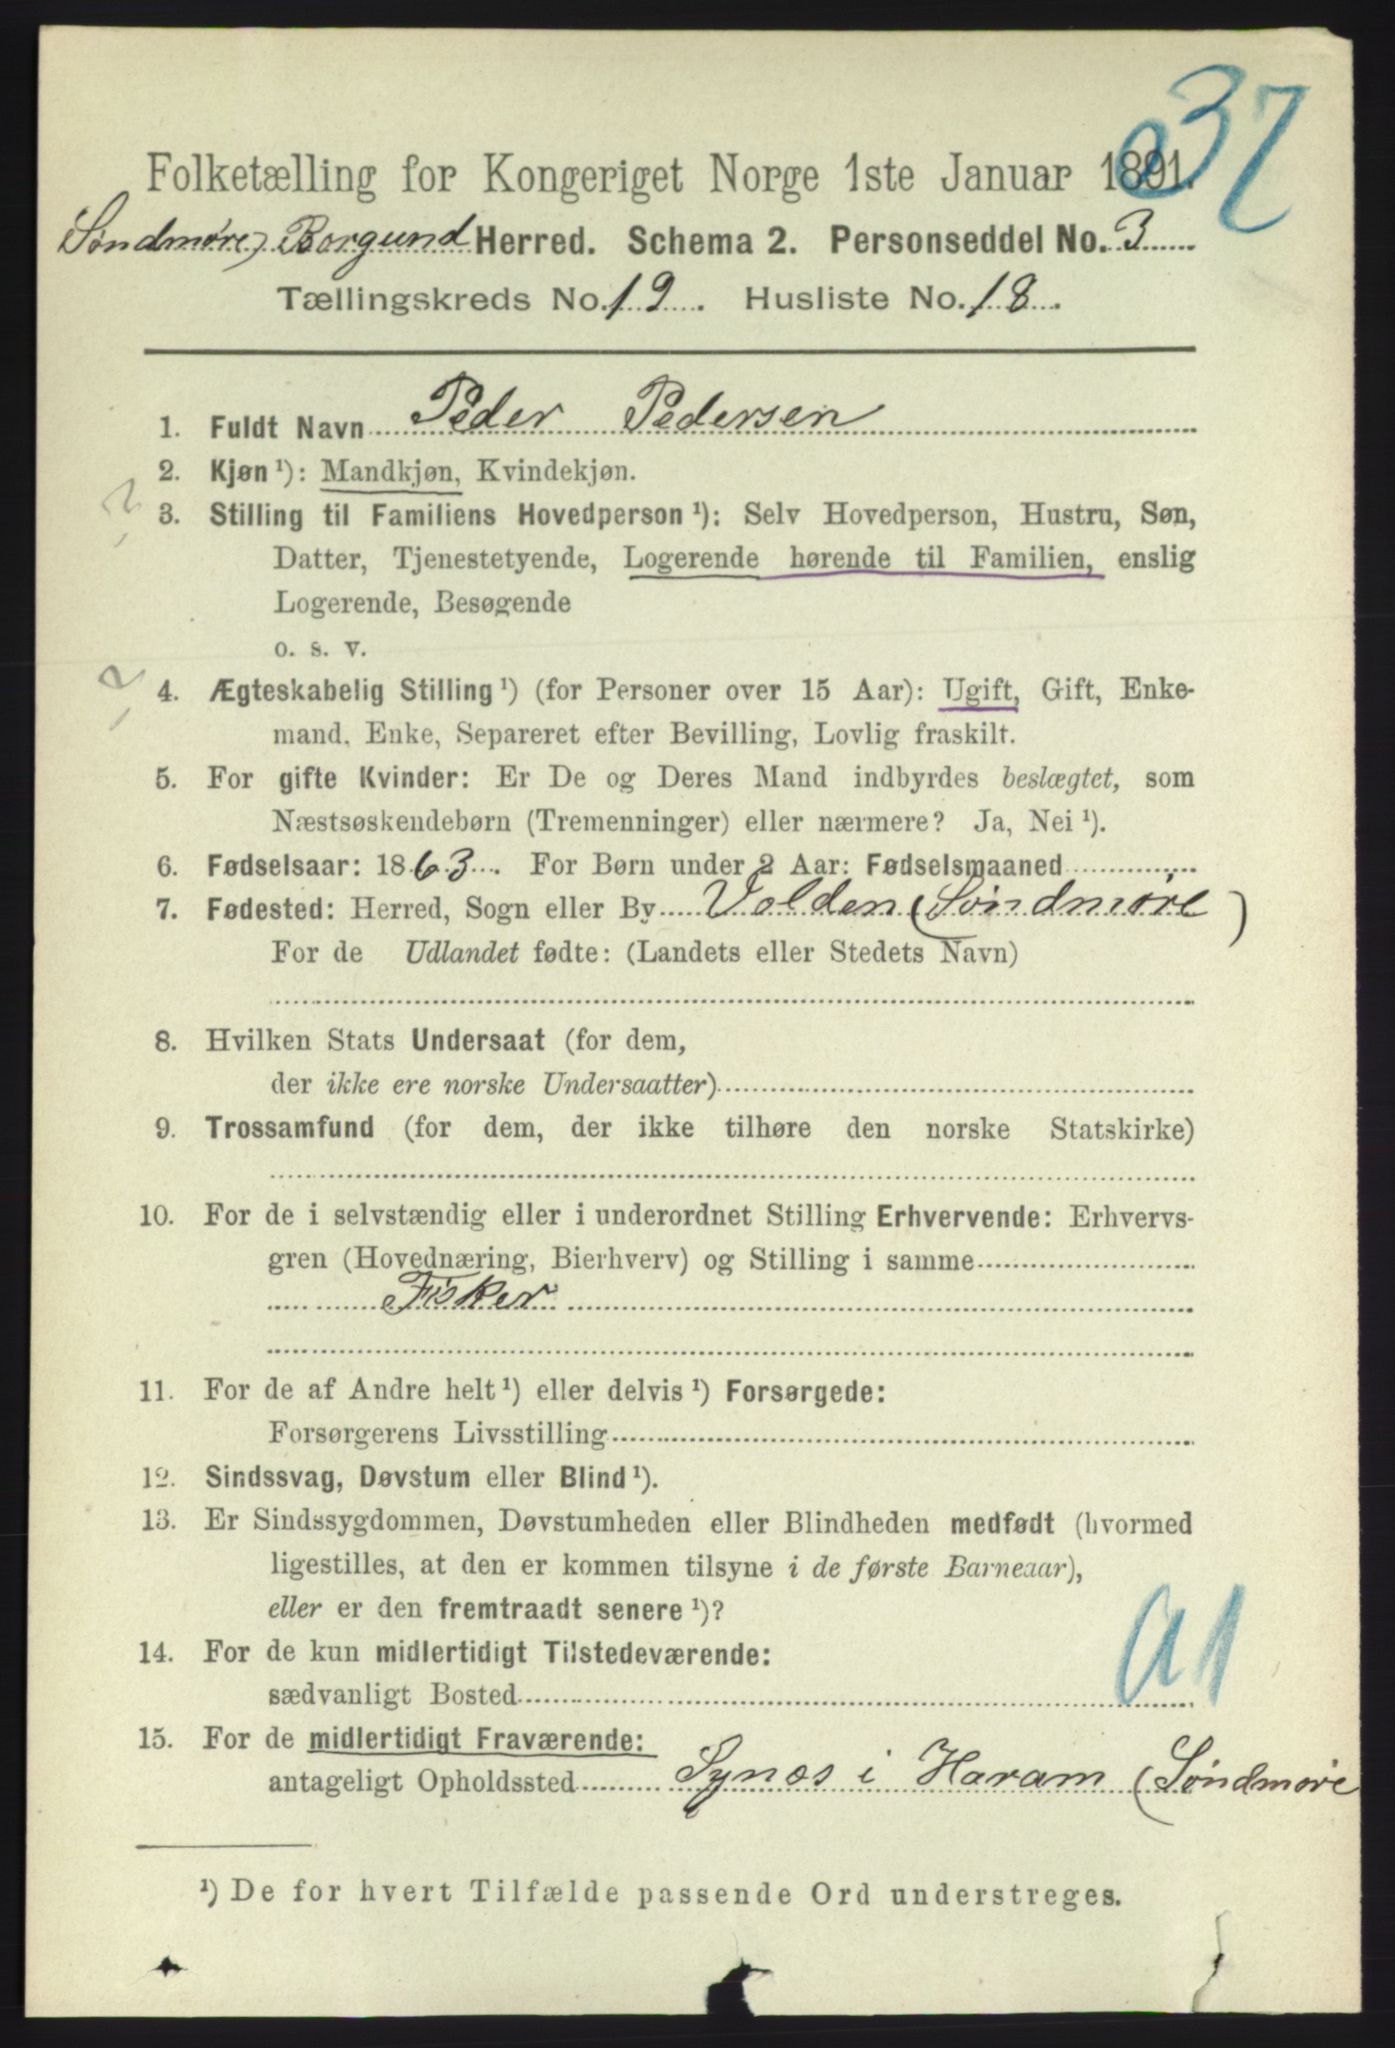 37
Folketælling for Kongeriget Norge 1ste Januar 1891.
Søndmøre) Borgund Herred. Schema 2. Personseddel No. 3
Tællingskreds No. 19. Husliste No. 18.
1. Fuldt Navn Peder Pedersen
2. Kjøn ¹): Mandkjøn, Kvindekjøn.
3. Stilling til Familiens Hovedperson ¹): Selv Hovedperson, Hustru, Søn,
Datter, Tjenestetyende, Logerende hørende til Familien, enslig
Logerende, Besøgende
o. s. v.
4. Ægteskabelig Stilling ¹) (for Personer over 15 Aar): Ugift, Gift, Enke-
mand, Enke, Separeret efter Bevilling, Lovlig fraskilt.
5. For gifte Kvinder: Er De og Deres Mand indbyrdes beslægtet, som
Næstsøskendebørn (Tremenninger) eller nærmere? Ja, Nei ¹).
6. Fødselsaar: 1863. For Børn under 2 Aar: Fødselsmaaned
7. Fødested: Herred, Sogn eller By Volden (Søndmøre)
For de Udlandet fødte: (Landets eller Stedets Navn)
8. Hvilken Stats Undersaat (for dem,
der ikke ere norske Undersaatter)
9. Trossamfund (for dem, der ikke tilhøre den norske Statskirke)
10. For de i selvstændig eller i underordnet Stilling Erhvervende: Erhvervs-
gren (Hovednæring, Bierhverv) og Stilling i samme
Fisker
11. For de af Andre helt ¹) eller delvis ¹) Forsørgede:
Forsørgerens Livsstilling
12. Sindssvag, Døvstum eller Blind ¹).
13. Er Sindssygdommen, Døvstumheden eller Blindheden medfødt (hvormed
ligestilles, at den er kommen tilsyne i de første Barneaar),
eller er den fremtraadt senere ¹)?
14. For de kun midlertidigt Tilstedeværende:
sædvanligt Bosted
a1
15. For de midlertidigt Fraværende:
antageligt Opholdssted Synes i Haram (Søndmøre
¹) De for hvert Tilfælde passende Ord understreges.